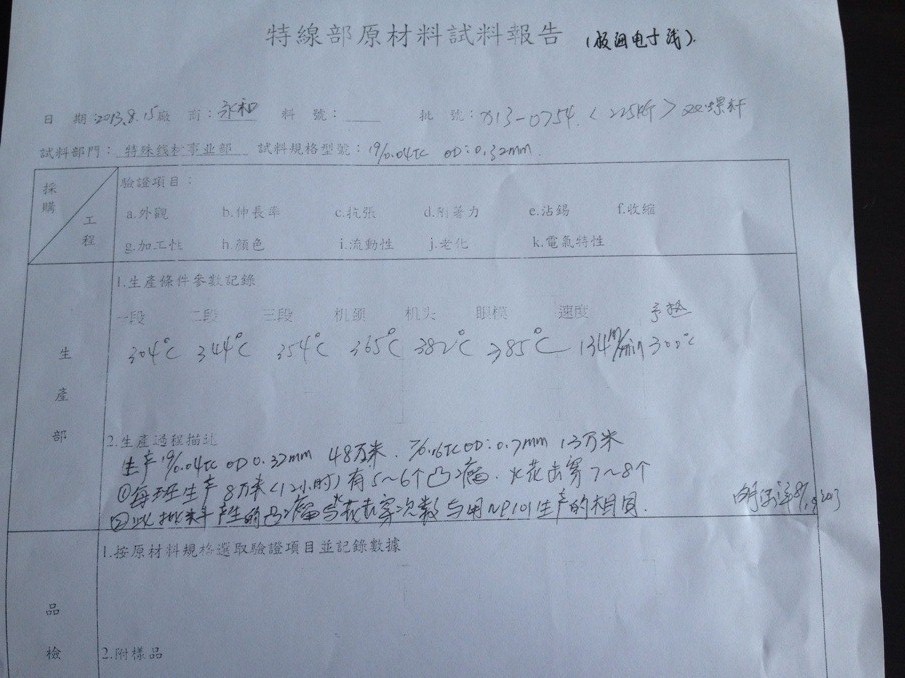 特線部原材料試料報告
日 期 2013.8.15 廠 商：永和 料 號： 批 號：713-0754 <225所> 双螺杆
試料部門：特殊线材事业部 試料規格型號：19/0.04TC OD:0.32mm
採購 工程 驗證項目：
a.外觀 b.伸長率 c.抗張 d.附著力 e.沾錫 f.收縮
g.加工性 h.顏色 i.流動性 j.老化 k.電氣特性
1.生產條件參數記錄
一段 二段 三段 机颈 机头 眼模 速度 予热
304°C 344°C 354°C 365°C 382°C 385°C 134m/min 300°C
生產部
2.生產過程描述
生产19/0.04TC OD0.32mm 48万米. 7/0.16TC OD:0.7mm 13万米
①每班生产8万米<12小时>有5~6个凸瘤. 火花击穿7~8个
②此批料产生的凸瘤与火花击穿次数与用NP101生产的相同.
品檢
1.按原材料規格選取驗證項目並記錄數據
2.附樣品